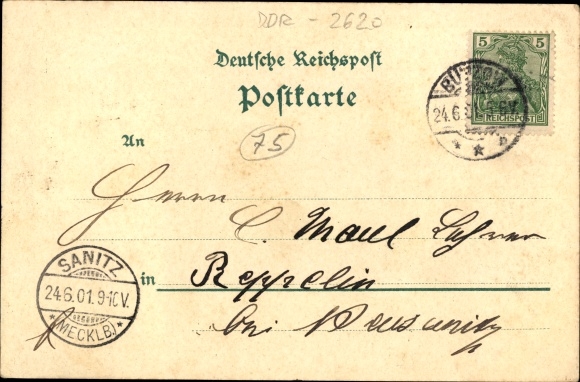 DDR - 2620
Deutsche Reichspost
Postkarte
5 5
REICHSPOST
BÜTZOW
24.6.01. 5-6V.
An
75
Herrn
C.
SANITZ
24.6.01.9-10V.
*(MECKLB.)*
in
Reppelin
bei Neusanitz